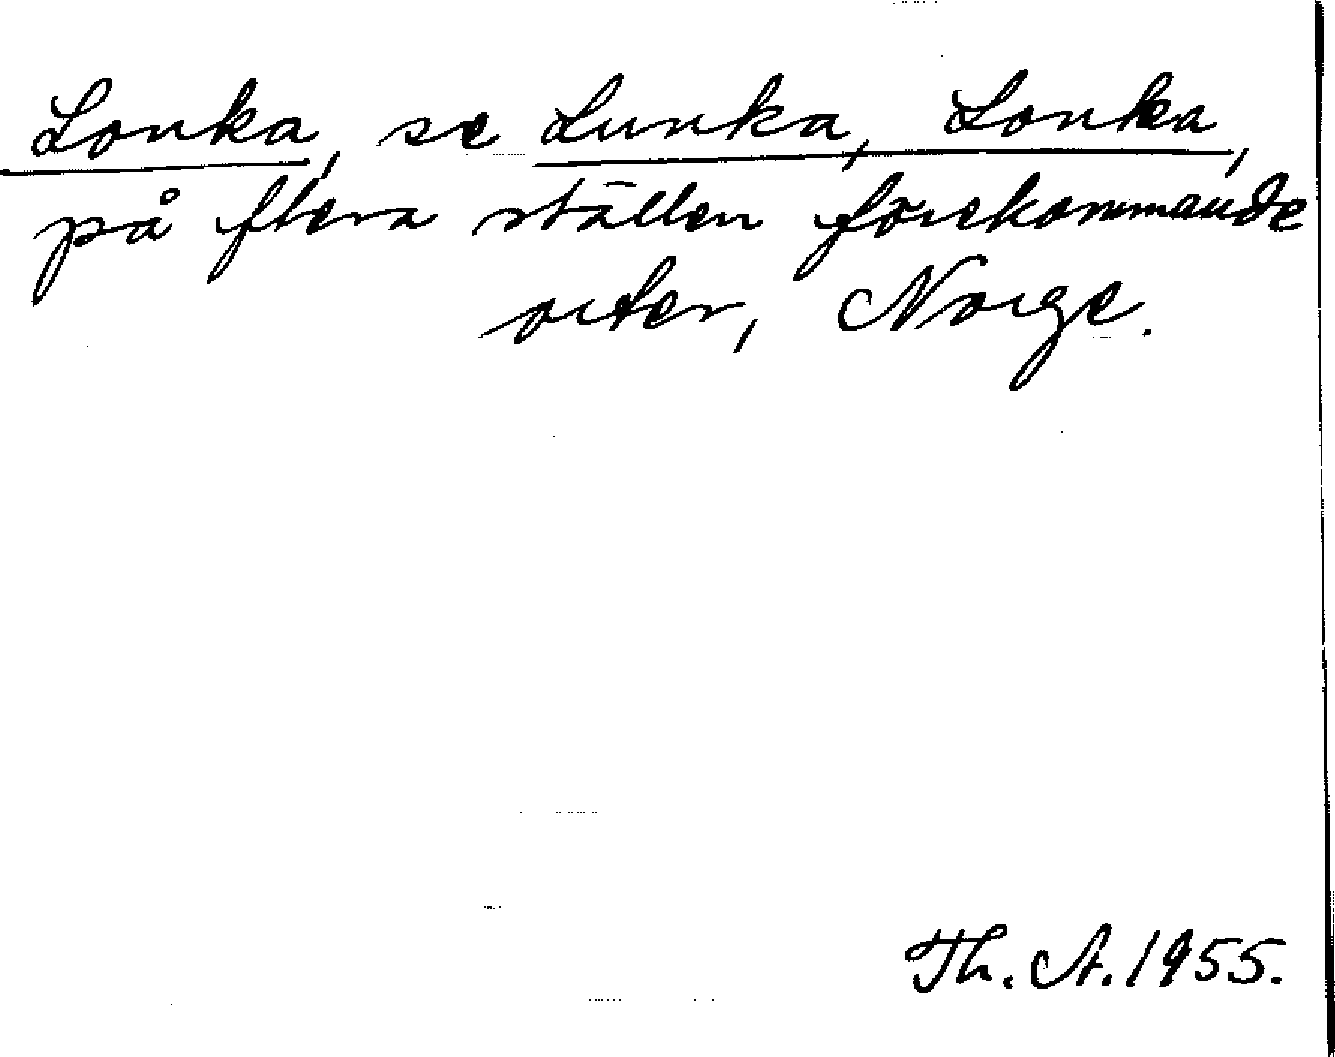 Lonka, se Lunka, Lonka,
på flera ställen förekommande
orter, Norge.
Th. A. 1955.